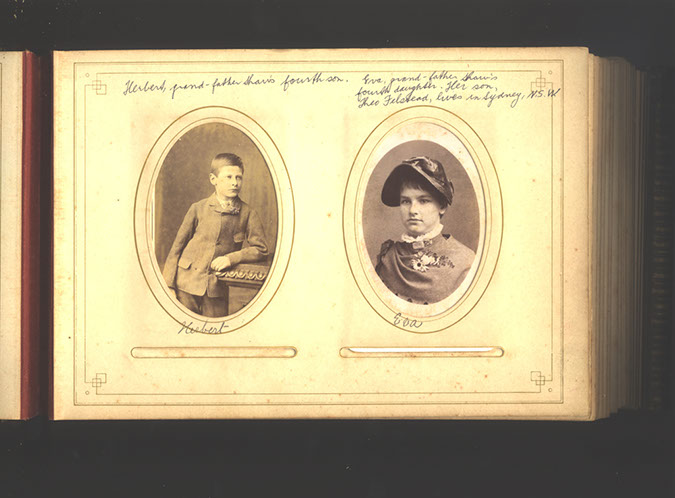 Herbert, grand-father Shaw's fourth son.
Eva, grand-father Shaw's
fourth daughter. Her son,
Theo Felstead, lives in Sydney, N.S.W
Herbert
Eva